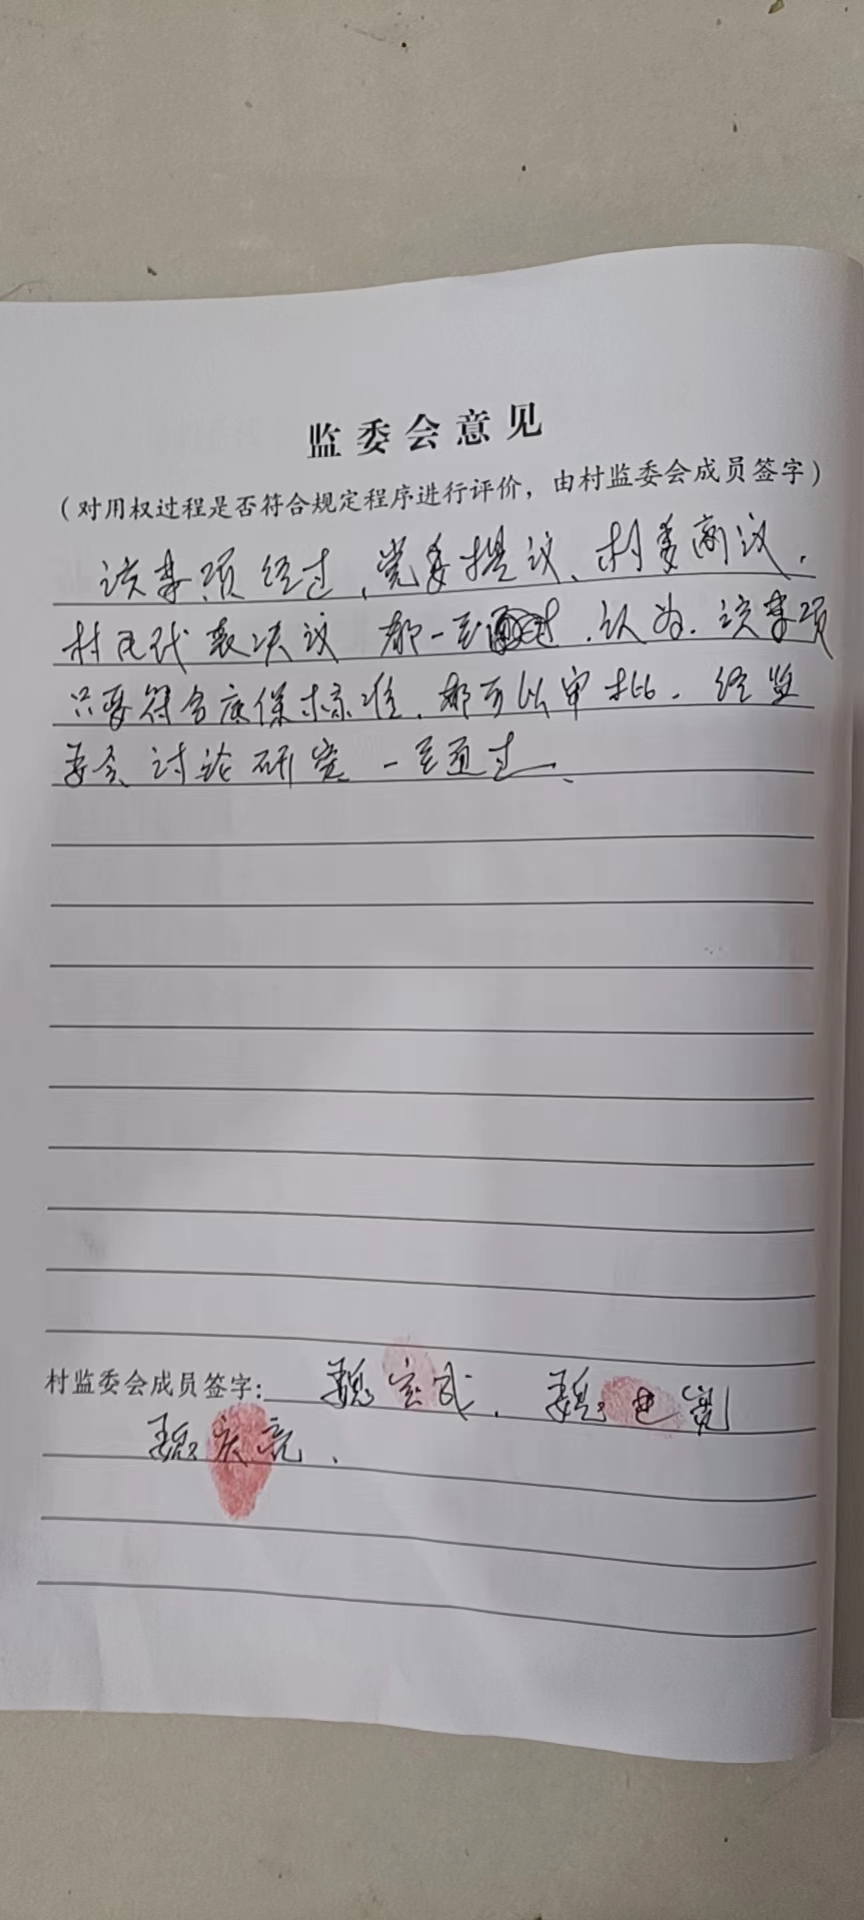 监委会意见
（对用权过程是否符合规定程序进行评价，由村监委会成员签字）
该事项经过、党委提议、村委商议、
村民代表决议 都一至通过、认为、该事项
只要符合底保标准、都可以审批、经监
委会、讨论研究 一至通过、
村监委会成员签字：魏宝武、魏
魏庆亮、